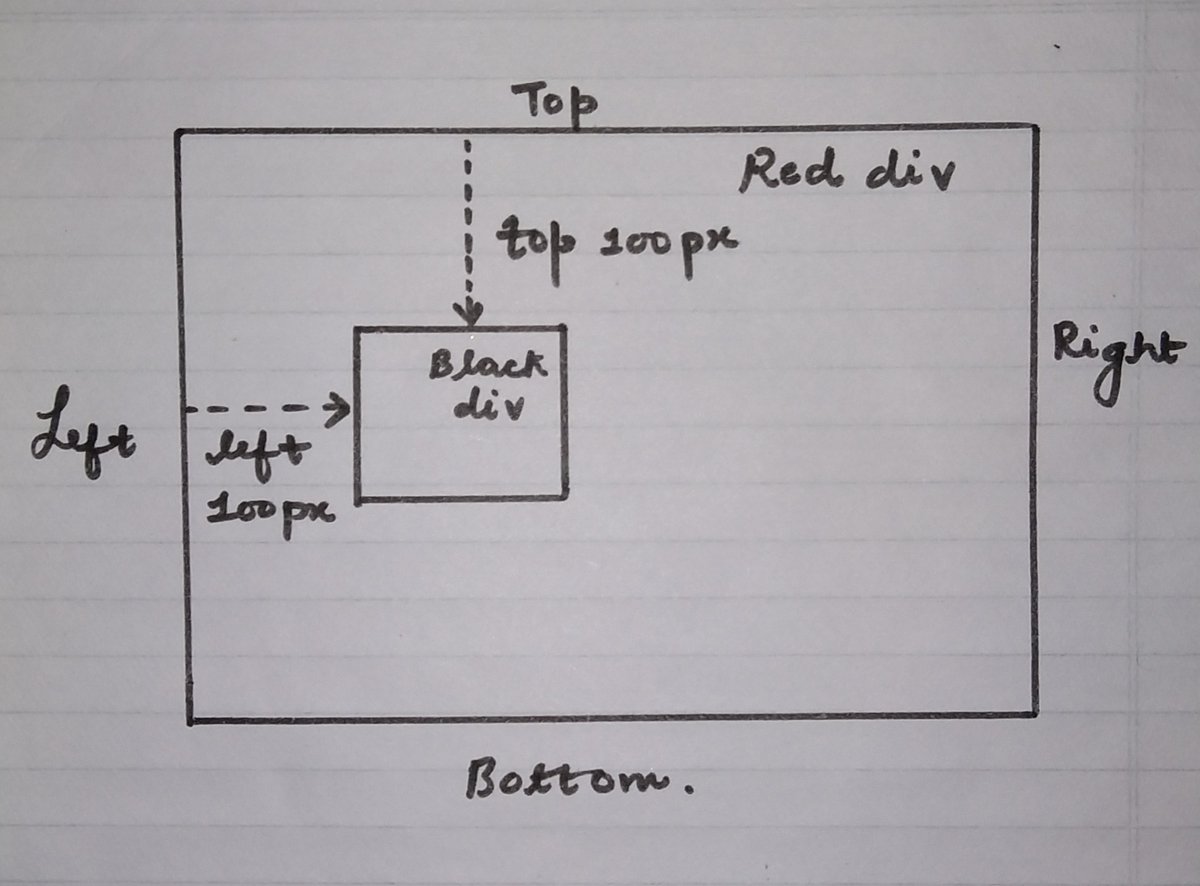 Top
Red div
top 100px
Black
div
Right
Left
left
100px
Bottom.